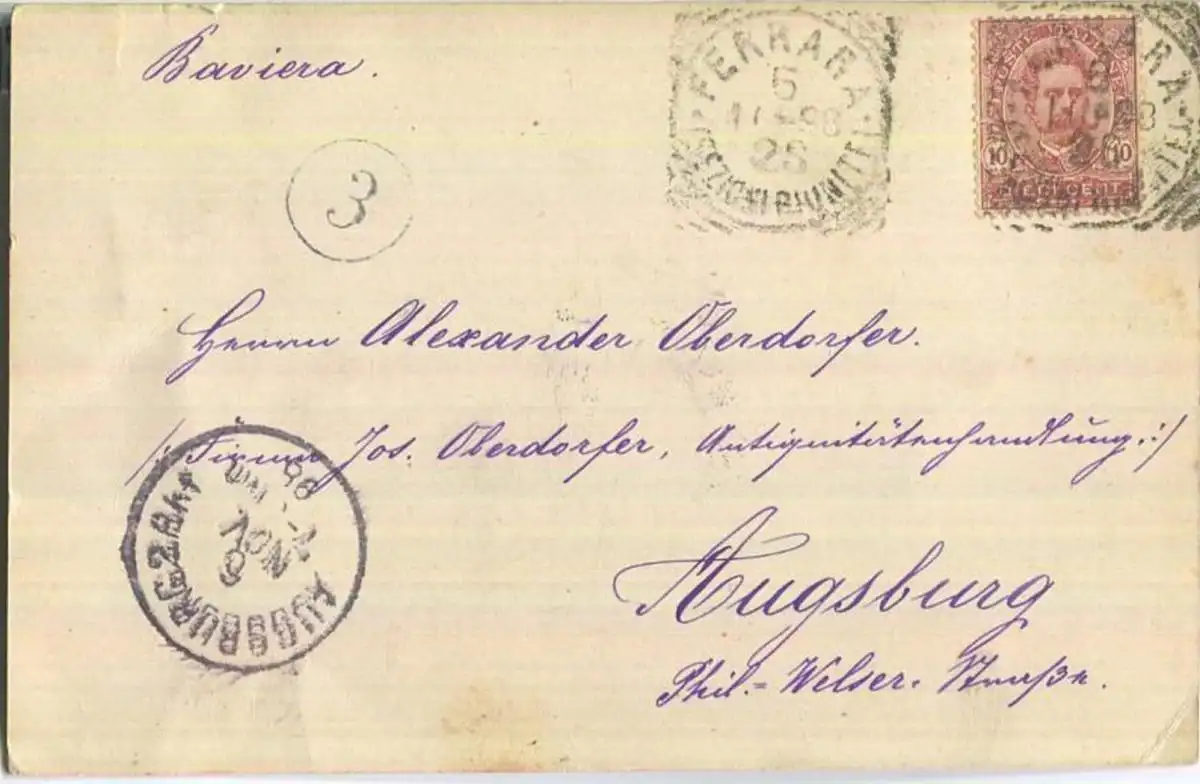 Baviera.
FERRARA
5
98
POSTE ITALIANE
10 10
3
Herrn Alexander Oberdorfer.
/: Firma Jos. Oberdorfer, Antiquitätenhandlung. :/
Augsburg
Phil.= Welser. Straße.
AUGSBURG 2 Bhf
NOV
98